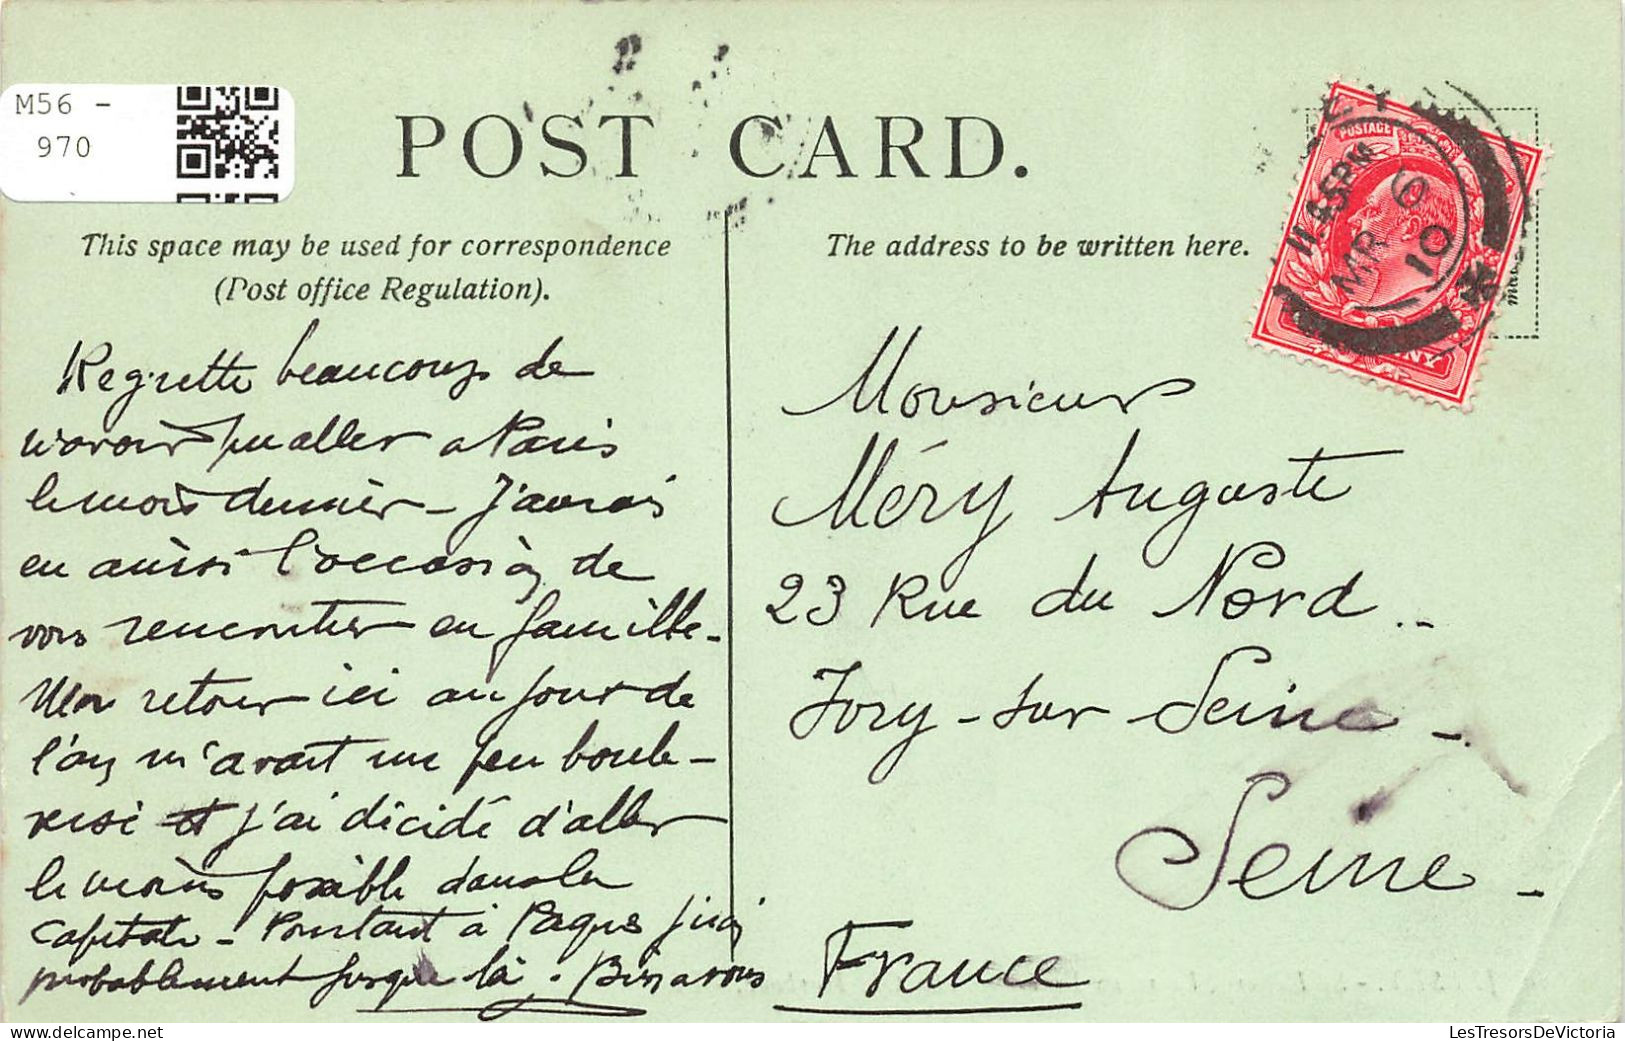 M56 -
970
POST CARD.
This space may be used for correspondence
(Post office Regulation).
The address to be written here.
POSTAGE
11.45PM
MR 6
10
Regrette beaucoup de
n'avoir pu aller a Paris
le mois dernier - J'aurais
eu ainsi l'occasion de
vous rencontrer en famille -
Mon retour ici au jour de
l'an m'avait un peu boule-
versé et j'ai décidé d'aller
le moins possible dans la
capitale - Pourtant à Paques j'irai
probablement jusque là. Bien à vous
Monsieur
Méry Auguste
23 Rue du Nord ..
Ivry - sur - Seine -
Seine -
France
LesTresorsDeVictoria